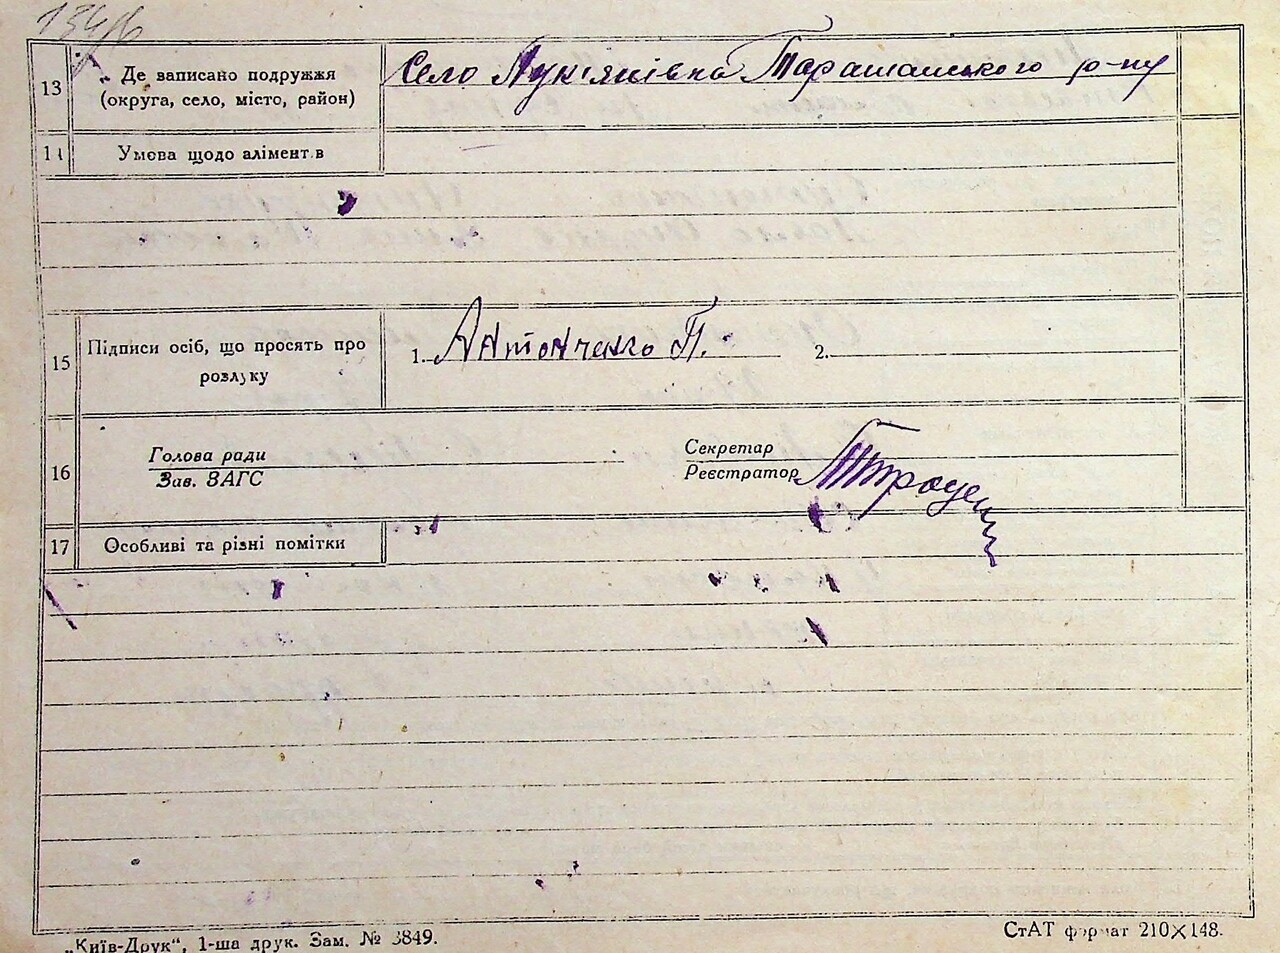 134/6
13 Де записано подружжя (округа, село, місто, район) Село Лук'янівка Таращанського р-ну
14 Умова щодо алімент.в
15 Підписи осіб, що просять про розлуку 1. Антонченко П. 2.
16 Голова ради Зав. ЗАГС Секретар Реєстратор
17 Особливі та різні помітки
„Київ-Друк“, 1-ша друк. Зам. № 3849. СтАТ формат 210×148.